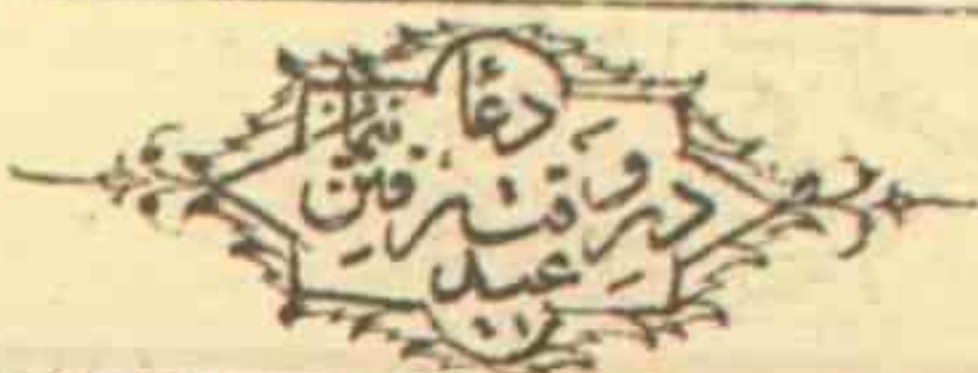 دعا
در وقت رفتن نماز
عید